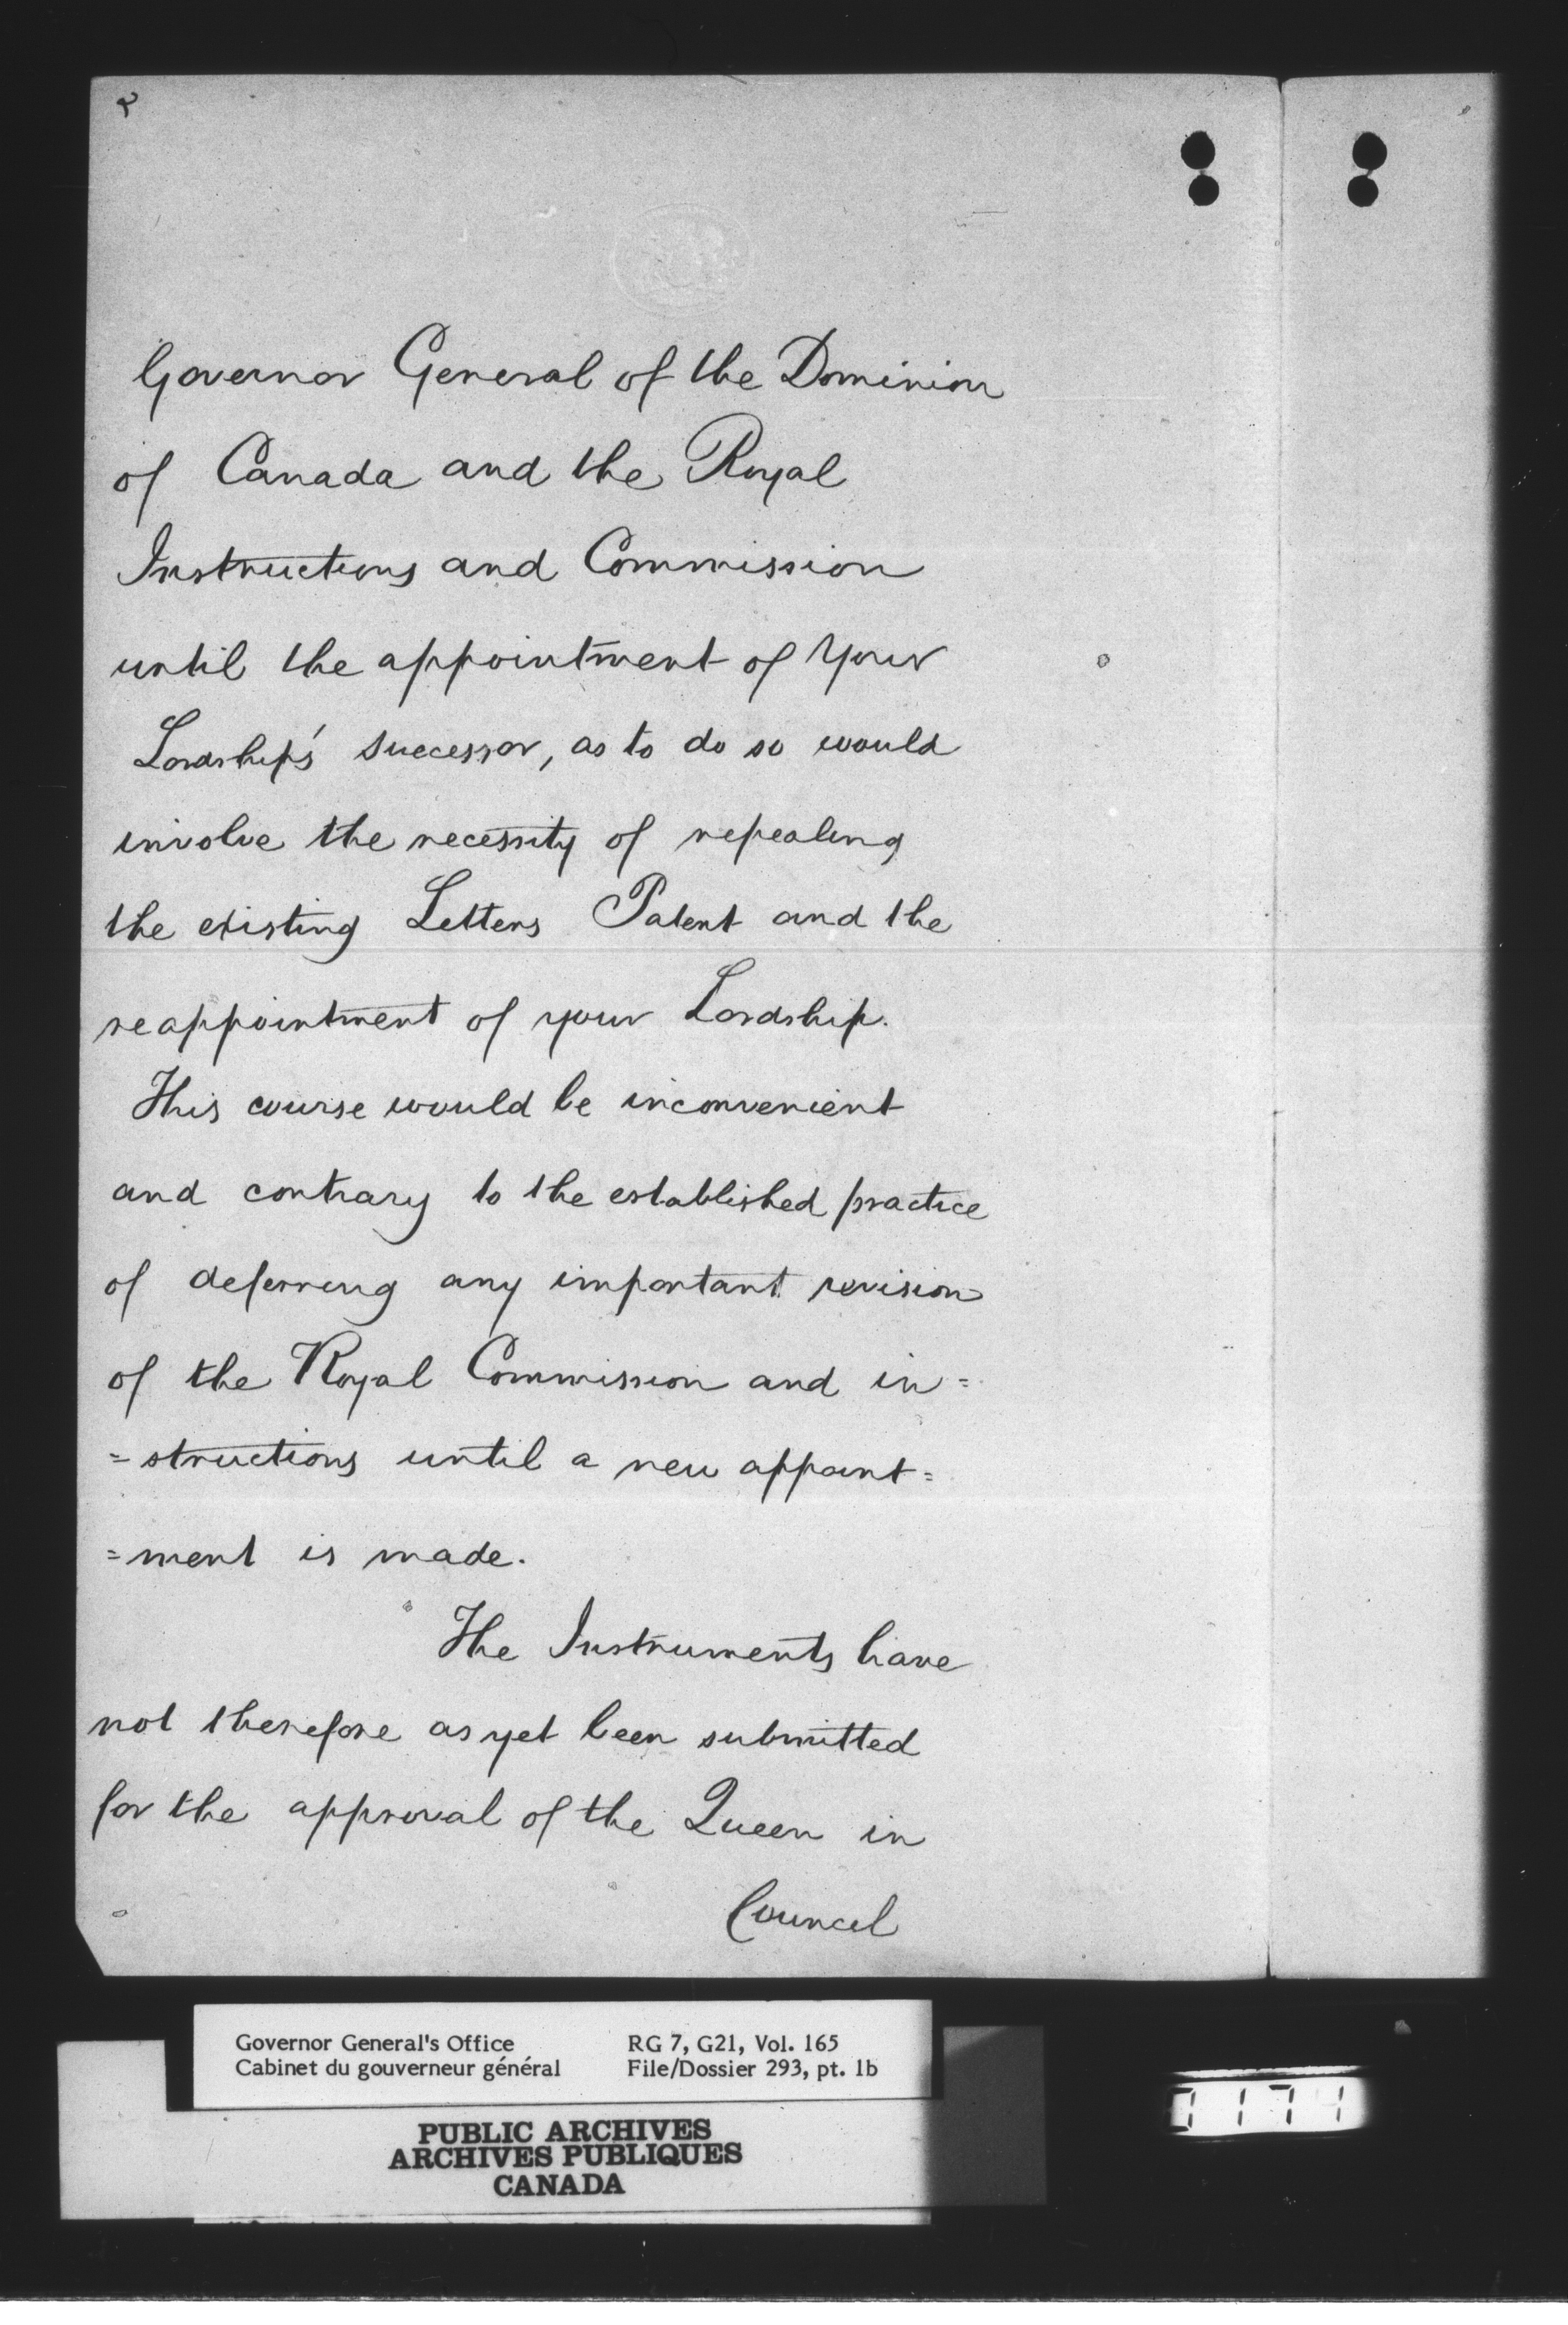 Governor General of the Dominion
of Canada and the Royal
Instructions and Commission
until the appointment of Your
Lordship's successor, as to do so would
involve the necessity of repealing
the existing Letters Patent and the
reappointment of your Lordship.
This course would be inconvenient
and contrary to the established practice
of deferring any important revision
of the Royal Commission and in=
=structions until a new appoint=
=ment is made.
The Instruments have
not therefore as yet been submitted
for the approval of the Queen in
Council
Governor General's Office RG 7, G21, Vol. 165
Cabinet du gouverneur général File/Dossier 293, pt. 1b
PUBLIC ARCHIVES
ARCHIVES PUBLIQUES
CANADA